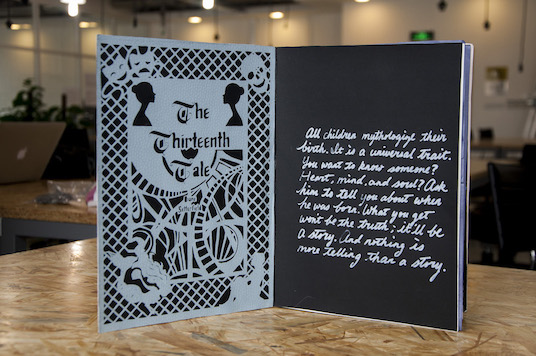 The
Thirteenth
Tale
All children mythologize their
birth. It is a universal trait.
You want to know someone?
Heart, mind, and soul? Ask
him to tell you about when
he was born. What you get
won't be the truth; it'll be
a story. And nothing is
more telling than a story.